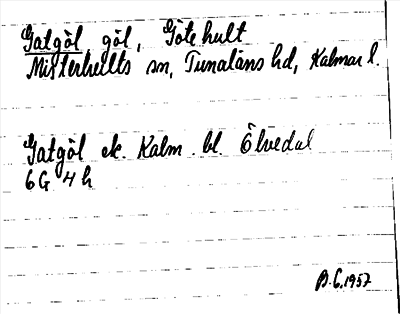 Gatgöl göl, Götehult
Misterhults sn, Tunaläns hd, Kalmar l.
Gatgöl ek. Kalm. bl. Ölvedal
6G 4h
B.G. 1957